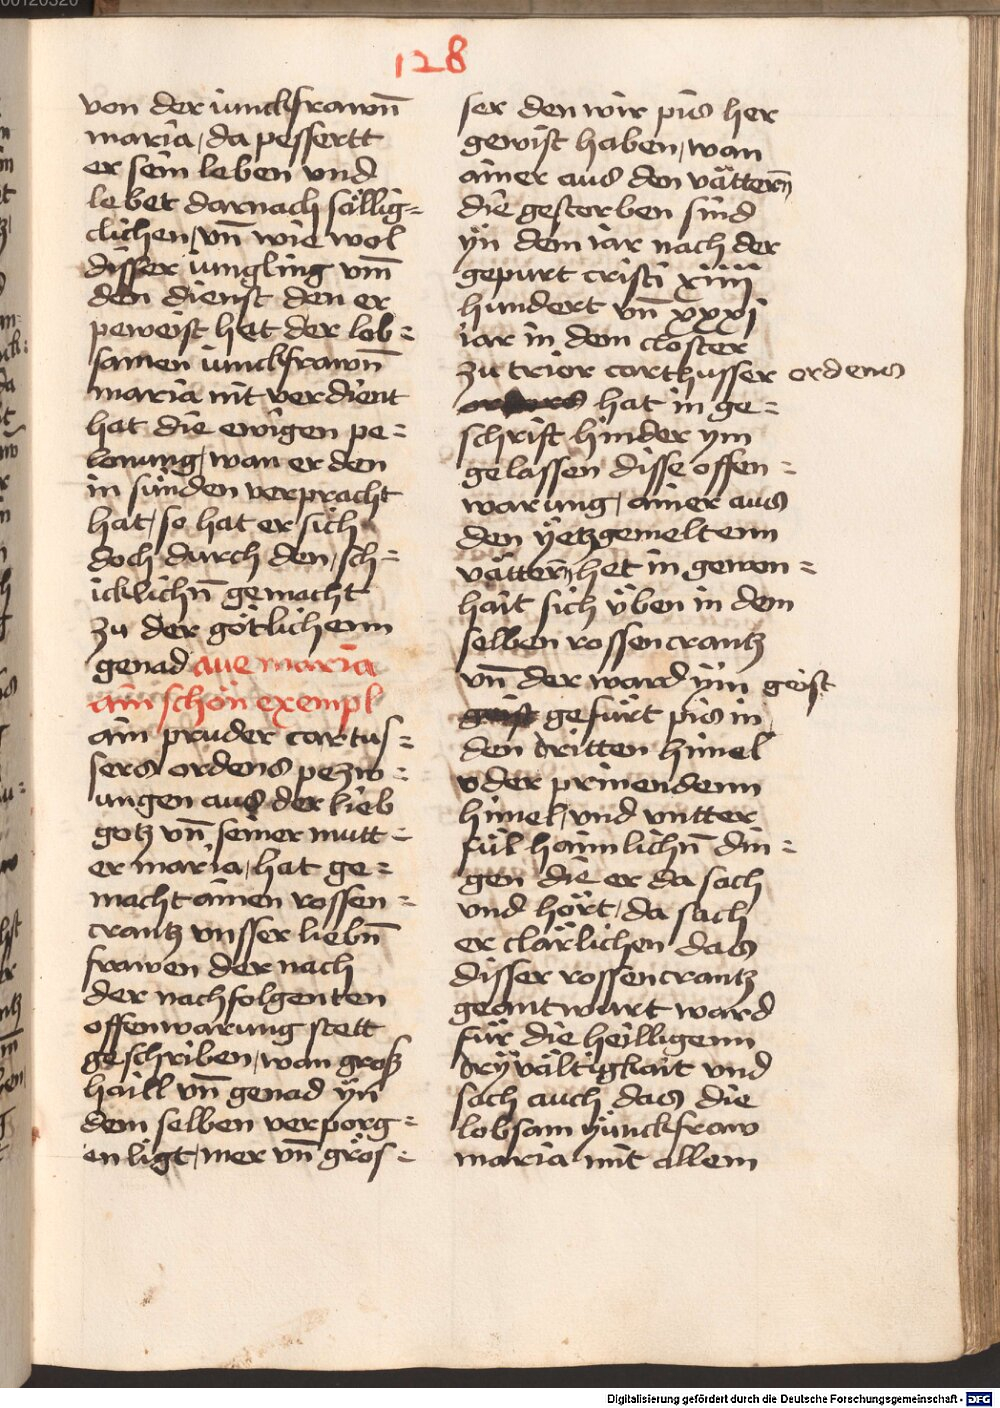 128
von der iunckfrawn̄
maria / da pessertt
er sein leben vnd
lebet darnach sällig⸗
clichen / vn̄ wie wol
disser iungling vm̄
den dienst den er
peweist het der lob⸗
samen iunckfrawn̄
maria nit verdient
hat die ewigen pe⸗
lonung / wan er den
in sünden verpracht
hat / so hat er sich
doch durch den / sch⸗
icklichn̄ gemacht
zu der götlichenn
genad aue maria
ain schön exempl
ain pruder cartus⸗
sers ordens pezw⸗
ungen aus der lieb
gotz vn̄ seiner mutt⸗
er maria / hat ge⸗
macht ainen rossen⸗
crantz vnsser liebn̄
frawen der nach
der nachfolgenten
offenwarung stett
geschriben / wan groß
haill vn̄ genad ÿn
dem selben verporg⸗
en ligt / mer vn̄ grös⸗
ser den wir pis her
gewist haben / wan
ainer aus den vättern
die gestorben sind
ÿn dem iar nach der
gepurt cristi xiiii
hundert vn̄ xxxi
iar in dem closter
zu trior carthusser ordens
hat in ge⸗
schrift hinder ym
gelassen disse offen⸗
warung / ainer aus
den ÿetzgemeltenn
vättern / het in gewon⸗
hait sich ÿben in dem
selben rossencrantz
vn̄ der ward ÿm geist
geist gefürt pis in
den dritten himel
oder prinendenn
himel / vnd vntter
füil haimlichn̄ din⸗
gen die er da sach
vnd hört / da sach
er clärlichen das
disser rossencrantz
geantwurt ward
für die heilligenn
dryvältigkait vnd
sach auch das die
lobsam ÿunckfraw
maria mit allem
Digitalisierung gefördert durch die Deutsche Forschungsgemeinschaft - DFG